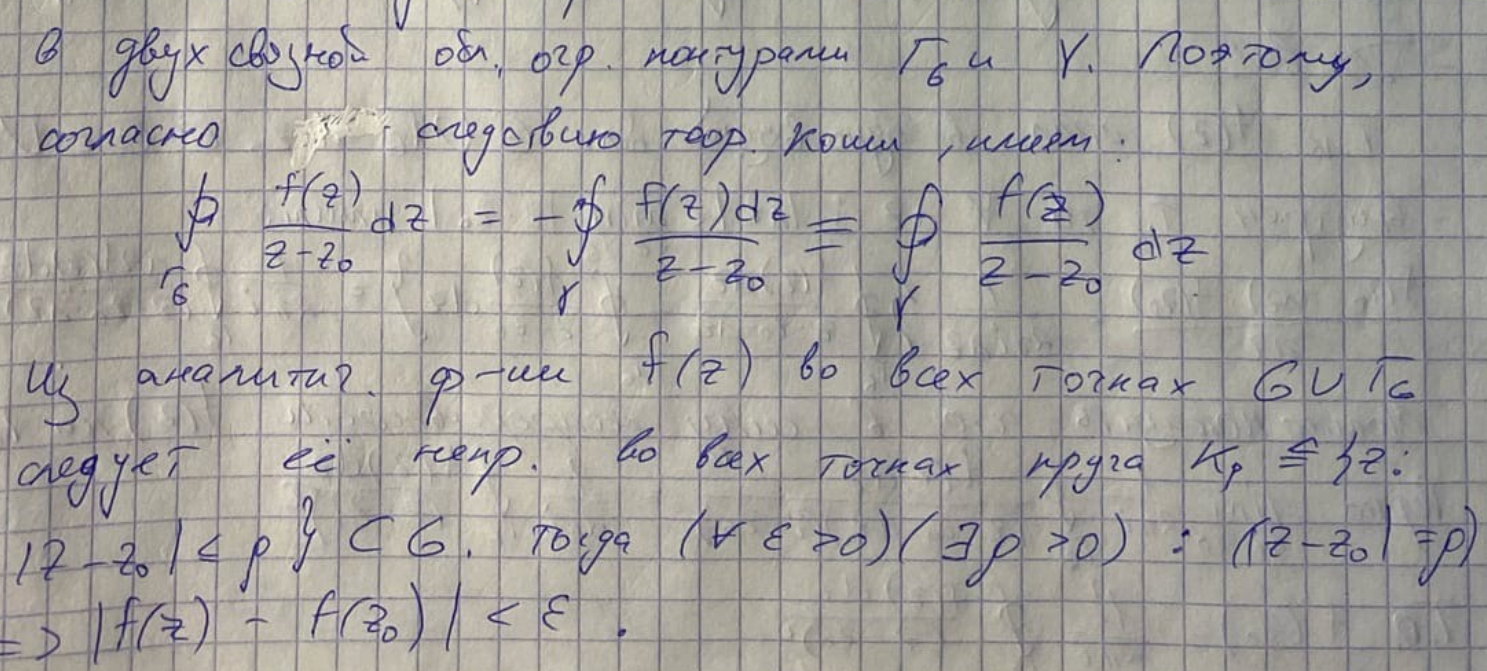 в двух связной обл. огр. контурами Γ_G и γ. Поэтому,
согласно следствию теор. Коши, имеем:
∮_{Γ_G} f(z)/(z-z₀) dz = -∮_γ f(z)dz/(z-z₀) = ∮_γ f(z)/(z-z₀) dz
Из аналитич. ф-ии f(z) во всех точках G∪Γ_G
следует её непр. во всех точках круга K_ρ ≦ {z:
|z-z₀| ≤ ρ} ⊂ G. Тогда (∀ ε>0)(∃ρ>0) : (|z-z₀| =ρ)
=> |f(z) - f(z₀)| < ε.